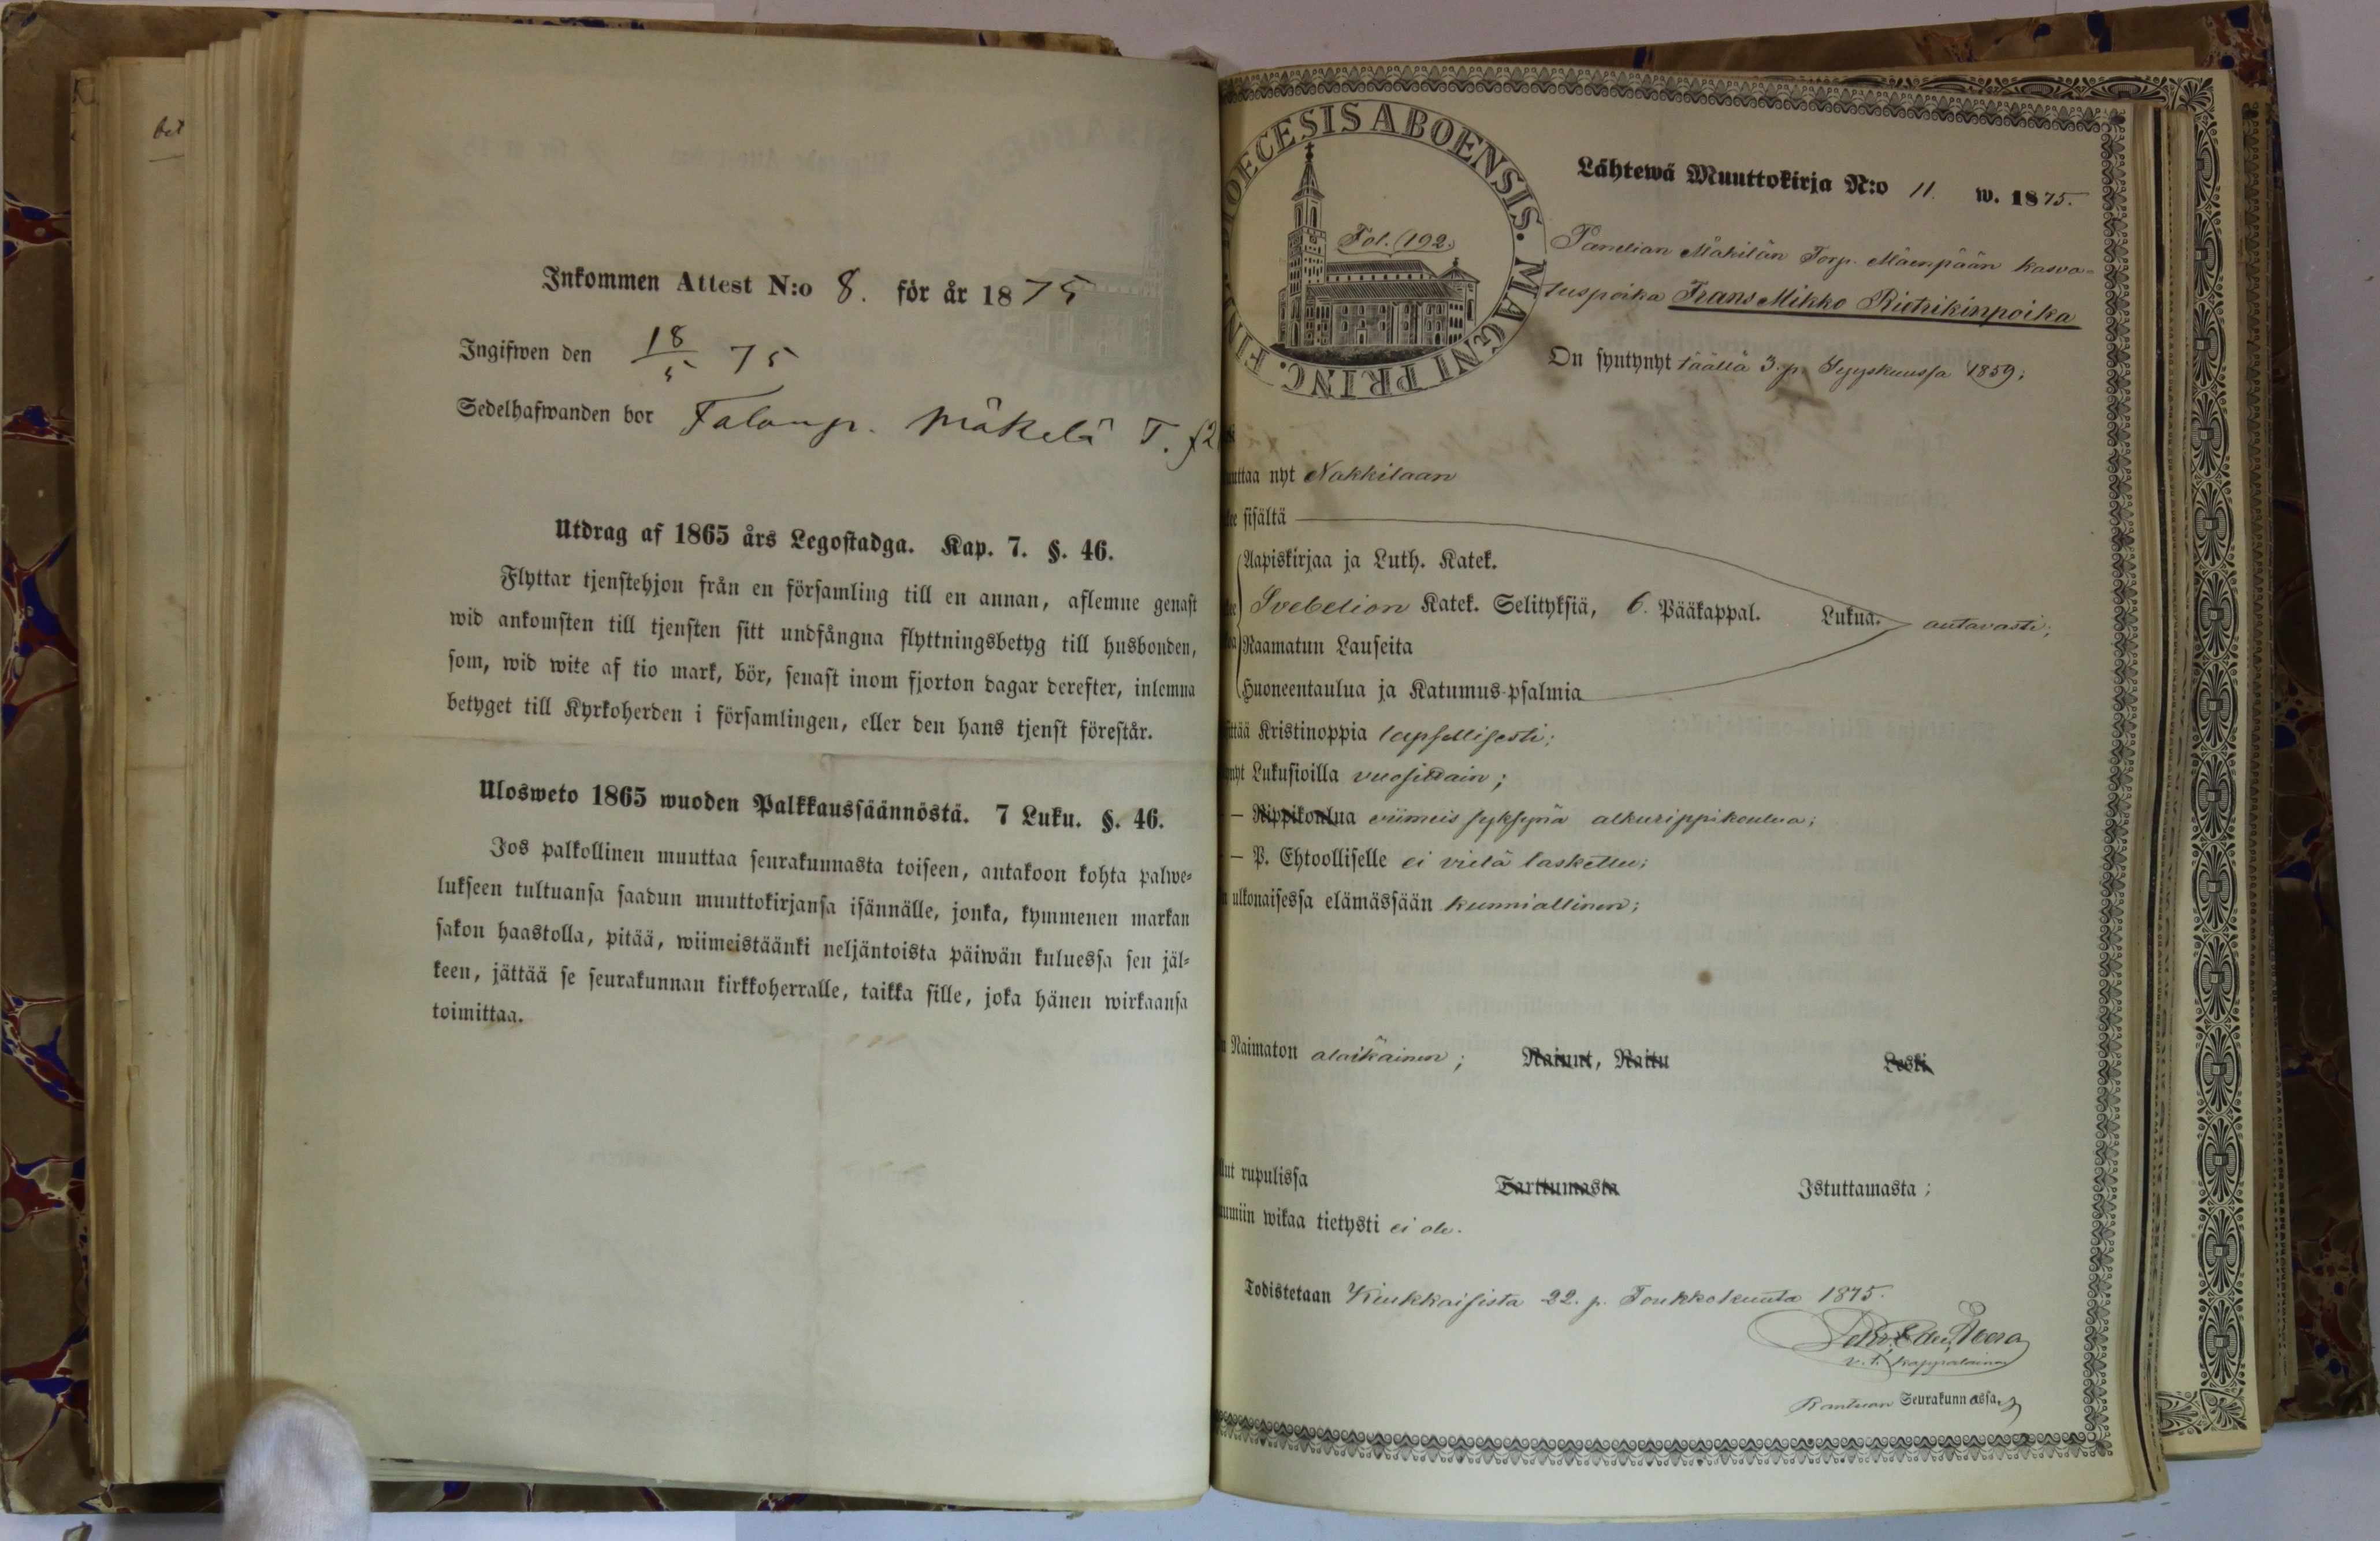 bet
Inkommen Attest N:o 8. för år 1875
Ingifwen den 18/5 75
Sedelhafwanden bor Mäkelä T.
Utdrag af 1865 års Legostadga. Kap. 7. §. 46.
Flyttar tjenstehjon från en församling till en annan, aflemne genast
wid ankomsten till tjensten sitt undfångna flyttningsbetyg till husbonden,
som, wid wite af tio mark, bör, senast inom fjorton dagar derefter, inlemna
betyget till Kyrkoherden i församlingen, eller den hans tjenst förestår.
Ulosweto 1865 wuoden Palkkaussäännöstä. 7 Luku. §. 46.
Jos palkollinen muuttaa seurakunnasta toiseen, antakoon kohta palwe=
lukseen tultuansa saadun muuttokirjansa isännälle, jonka, kymmenen markan
sakon haastolla, pitää, wiimeistäänki neljäntoista päiwän kuluessa sen jäl=
keen, jättää se seurakunnan kirkkoherralle, taikka sille, joka hänen wirkaansa
toimittaa.
DIOECESIS ABOENSIS. MAGNI PRINC. FIN
Fol. 192.
Lähtewä Muuttokirja N:o 11. w. 1875.
Panelian Mäkilän Torp. Mäenpään kasva=
tuspoika Frans Mikko Rietrikinpoika
On syntynyt täällä 3. p. Syyskuussa 1859;
uttaa nyt Nakkilaan
lee sisältä
Aapiskirjaa ja Luth. Katek.
Svebelion Katek. Selityksiä, 6. Pääkappal. Lukua. autavasti;
Raamatun Lauseita
Huoneentaulua ja Katumus-psalmia
ittää Kristinoppia lapsellisesti;
ynyt Lukusioilla vuosittain;
— Rippikoulua viimeis syksynä alkurippikoulua;
— P. Ehtoolliselle ei vielä laskettu;
n ulkonaisessa elämässään kunniallinen;
n Naimaton alaikäinen; Nainut, Naitu Leski
lut rupulissa Tarttumasta Istuttamasta;
umiin wikaa tietysti ei ole.
Todistetaan Kiukkaisista 22. p. Toukkokuuta 1875.
v. t. kappalainen
Seurakunnassa